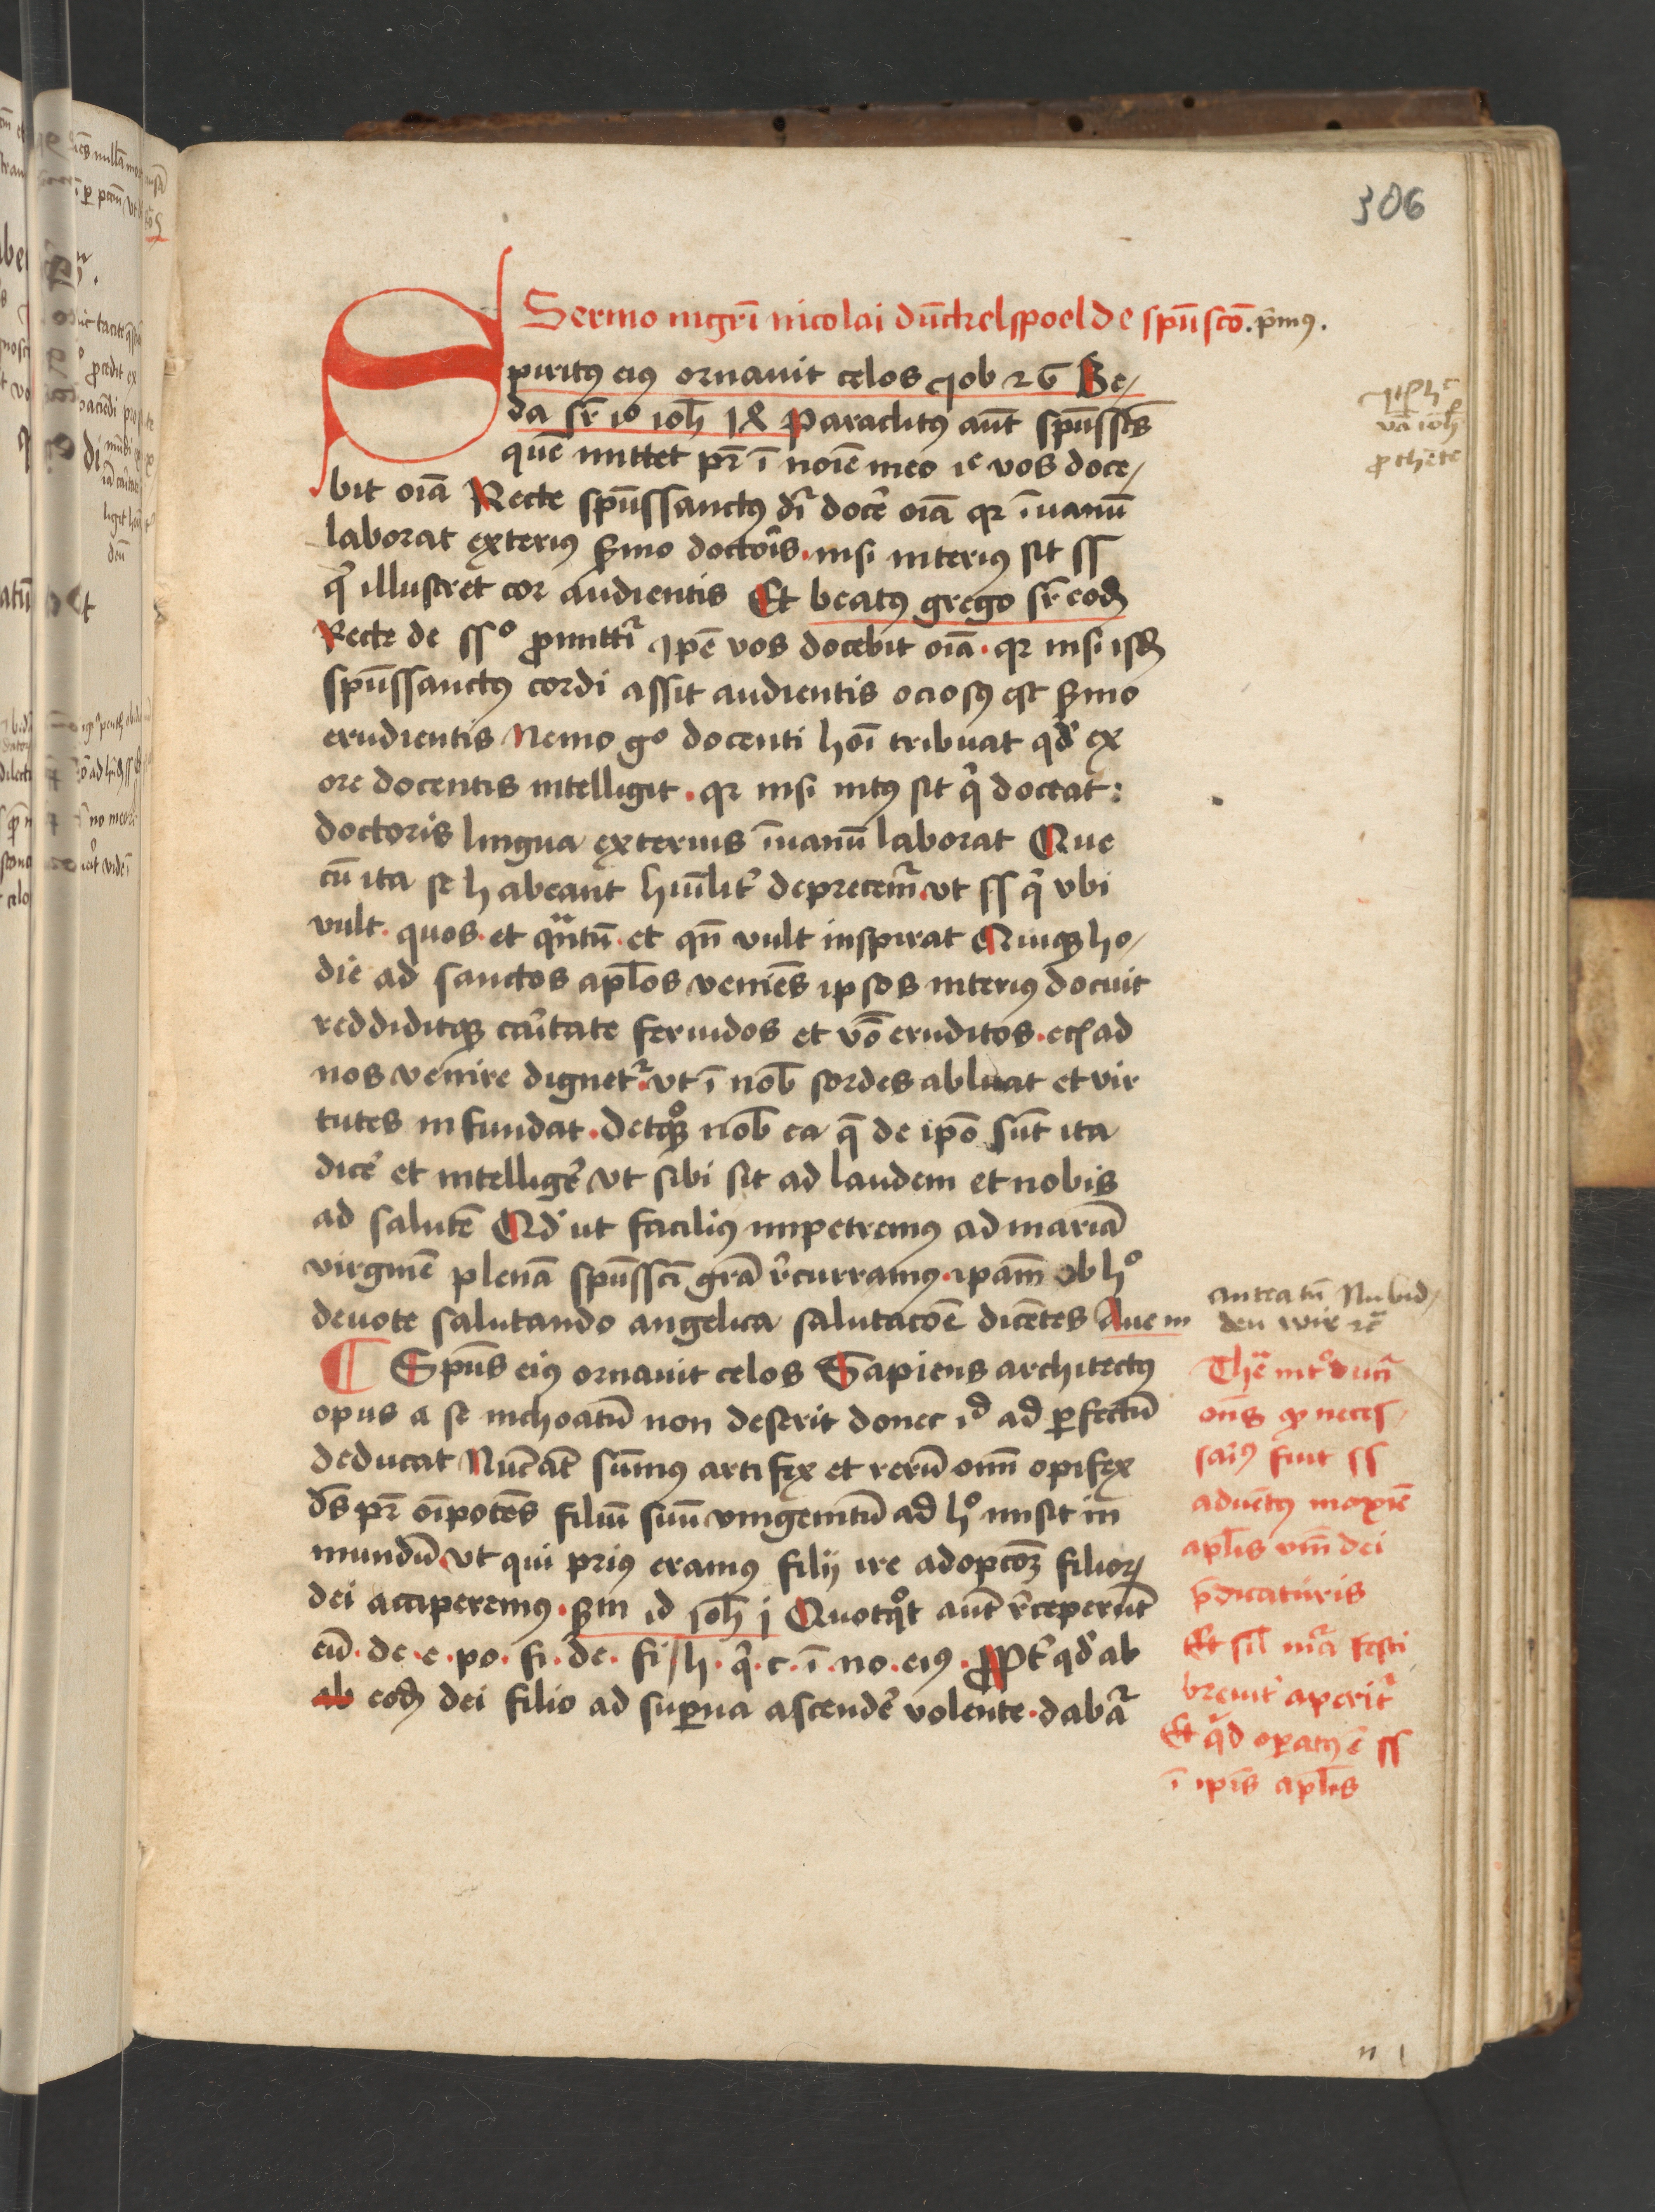 306
Sermo mgrī nicolai dūckelspoel de spū scō. pͥmꝰ.
Spiritꝰ eiꝰ ornavit celos Job 26 Be/
da sr̄ io ioh̄ 14 Paraclitꝰ aūt spūsscs̄
quē mittet pr̄ ī noīe meo ic̄ vos doce/
bit oīa Recte spūssanctꝰ dr̄ docē oīa qꝛ īuanū
laborat exteriꝰ ẜmo doctoīs. nisi interiꝰ sit ss
qͥ illustret cor audientis Et beatꝰ grego sr̄ eod̄
Recte de ssº ꝓmittiͬ ipē vos docebit oīa. qꝛ nisi isd̄
spūssanctꝰ cordi assit audientis ociosꝰ est ẜmo
erudientis Nemo gº docenti hoī tribuat qd̄ ex
ore docentis intelligit. qꝛ nisi intꝰ sit qͥ doceat:
doctoris lingua exterius īuanū laborat Que
cū ita se habeant hūilit̾ deprecemͬ. vt ss qͥ vbi
vult. quos. et qͣntū. et qn̄ vult inspirat Quiqꝫ ho/
die ad sanctos apl̄os veniēs ipsos interiꝰ docuit
reddiditqꝫ caͥtate feruidos et v̄o eruditos. ecͥ ad
nos venire dignetͬ. vt ī nob̄ sordes abluat et vir
tutes infundat. Detqꝫ nob̄ ea q̄ de ipō sūt ita
dicē et intelligē vt sibi sit ad laudem et nobis
ad salutē Qd̾ ut faciliꝰ impetremus ad mariā
virginē plenā spūsscī gr̄a rͤcurramꝰ. ipam̄ ob hº
deuote salutando angelica salutacōē dicētes Aue m
¶ Spūs eiꝰ ornauit celos Sapiens architectꝰ
opus a se inchoatū non deserit donec id ad ꝑfectū
deducat Nūc aūt sūmꝰ artifex et rerū oīm opifex
ds̄ pr̄ oīpotēs filiū suū vnigenitū ad hº misit in
mundū vt qui priꝰ eramꝰ filij ire adopcōꝫ filioꝝ
dei acciperemꝰ. ẜm id ioh̄ j Quotqͦt aūt rͤceperūt
eū. de. e. po. fi. de. fi / h. qͥ. c. ī. no. eiꝰ. Propt̾ qd̄ ab
ab eod̄ dei filio ad suꝑna ascendē volente. dabāͬ
vā ioh̄
antea tn̄ Nu bid/
den wir ꝛc̄
The īntͦducī
oīs qͦ neces/
saīꝰ fuit ss
aduētꝰ maxīe
apl̄is vīn dei
p̄dicaturis
Et sil̄ mͣa festi
breuit̾ aperitͬ
Et qͥd oꝑatꝰ ē ss
ī ipīs apl̄is